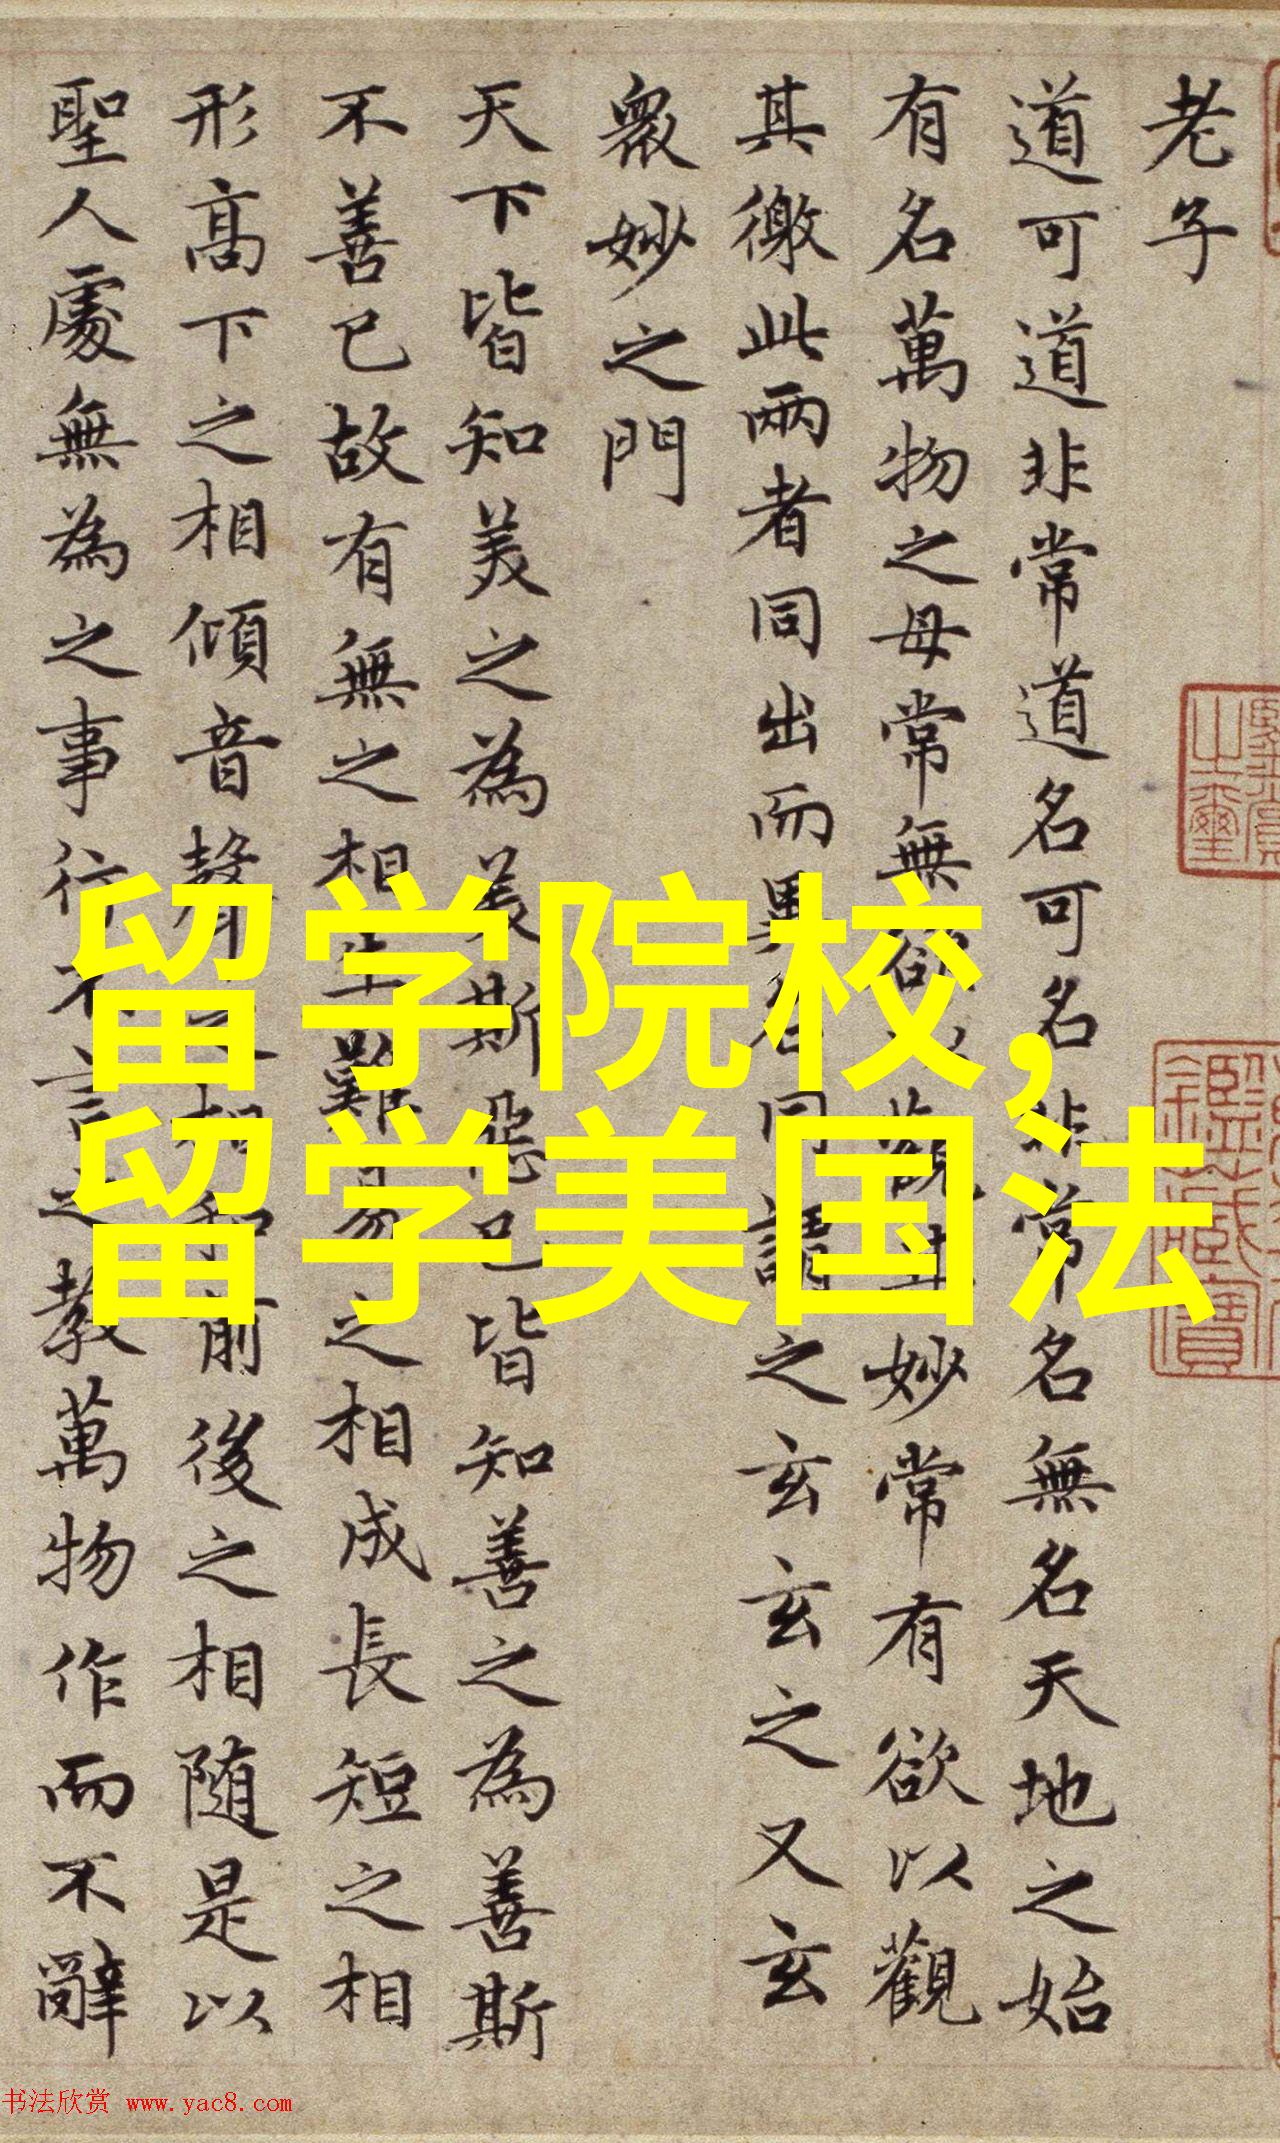 老子
道可道非常道名可名非常名無名天地之始
有名萬物之母常無欲以觀其妙常有欲以觀
其徼此兩者同出而異名同謂之玄玄之又玄
衆妙之門
天下皆知美之為美斯惡已皆知善之為善斯
不善已故有無之相生難易之相成長短之相
形高下之相傾音聲之相和前後之相隨是以
聖人處無為之事行不言之教萬物作而不辭
留学院校,
留学美国法
书法欣赏 www.yac8.com